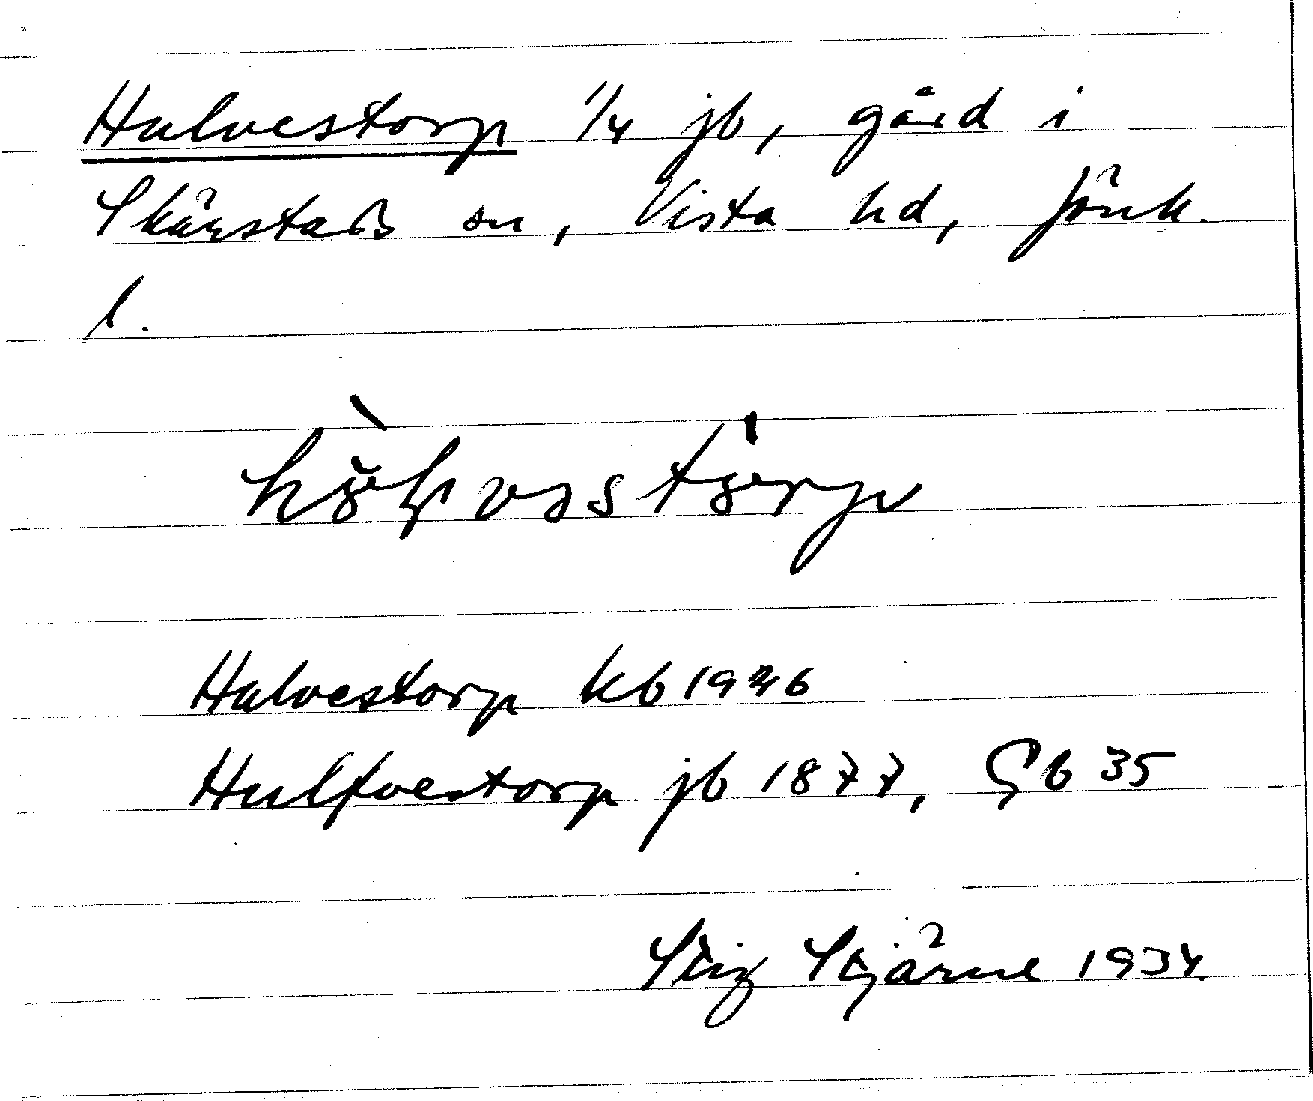 Hulvestorp 1/4 jb, gård i
Skärstads sn, Vista hd, Jönk.
l.
Hulvestorp kb 1926
Hulfvestorp jb 1877, Gb 35
Stig Stjärne 1934